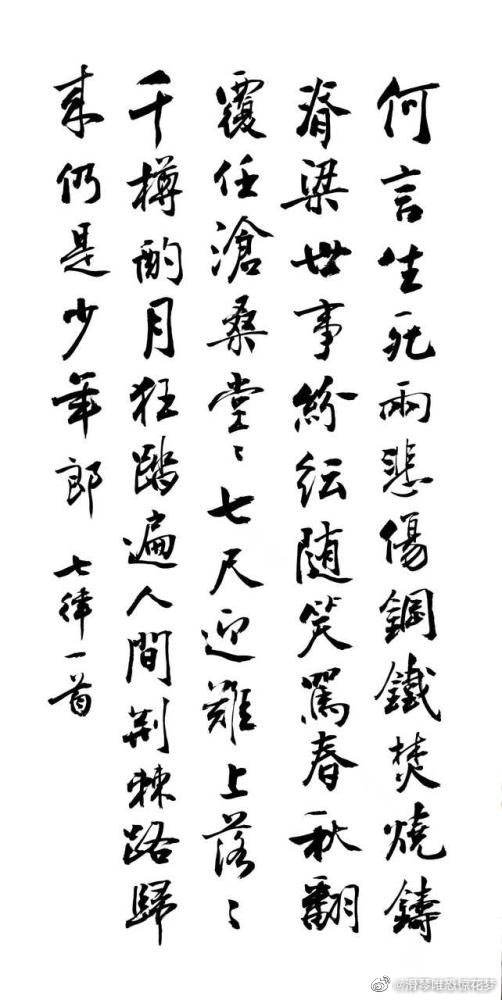 何言生死兩悲傷鋼鐵焚燒鑄
脊梁世事紛紜随笑罵春秋翻
覆任滄桑堂〻七尺迎難上落〻
千樽酌月狂踏遍人間荆棘路歸
来仍是少年郎 七律一首
@滑琴唯恐惊花梦